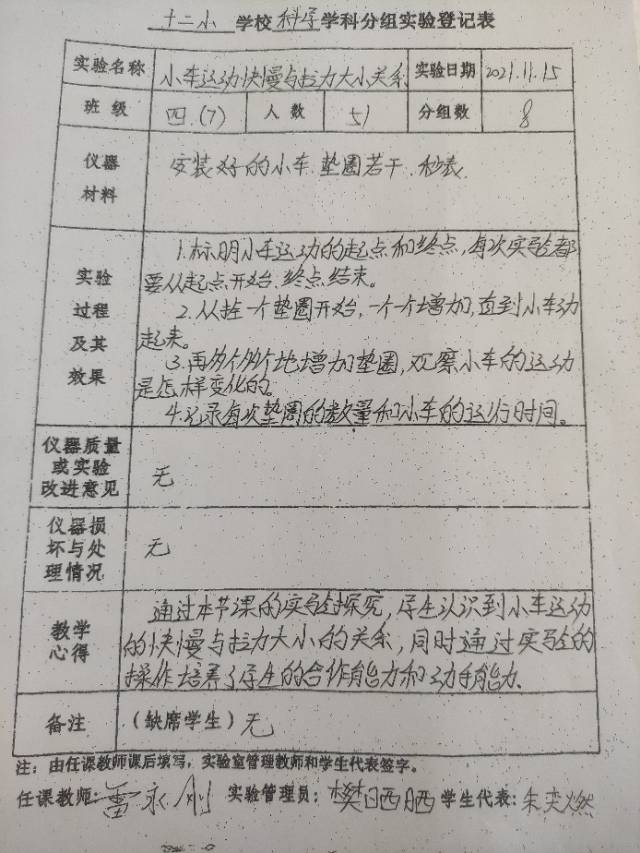 十二小 学校 科学 学科分组实验登记表
实验名称 小车运动快慢与拉力大小关系 实验日期 2021.11.15
班级 四.(7) 人数 51 分组数 8
仪器材料 安装好的小车.垫圈若干.秒表.
实验过程及其效果
1.标明小车运动的起点和终点,每次实验都
要从起点开始.终点结束。
2.从挂一个垫圈开始,一个个增加,直到小车动
起来。
3.再多个多个地增加垫圈,观察小车的运动
是怎样变化的。
4.记录每次垫圈的数量和小车的运行时间。
仪器质量或实验改进意见 无
仪器损坏与处理情况 无
教学心得
通过本节课的实验探究,学生认识到小车运动
的快慢与拉力大小的关系,同时通过实验的
操作培养了学生的合作能力和动手能力.
备注 (缺席学生)无
注:由任课教师课后填写,实验室管理教师和学生代表签字。
任课教师:雷永刚 实验管理员:樊晒晒 学生代表:朱奕燃